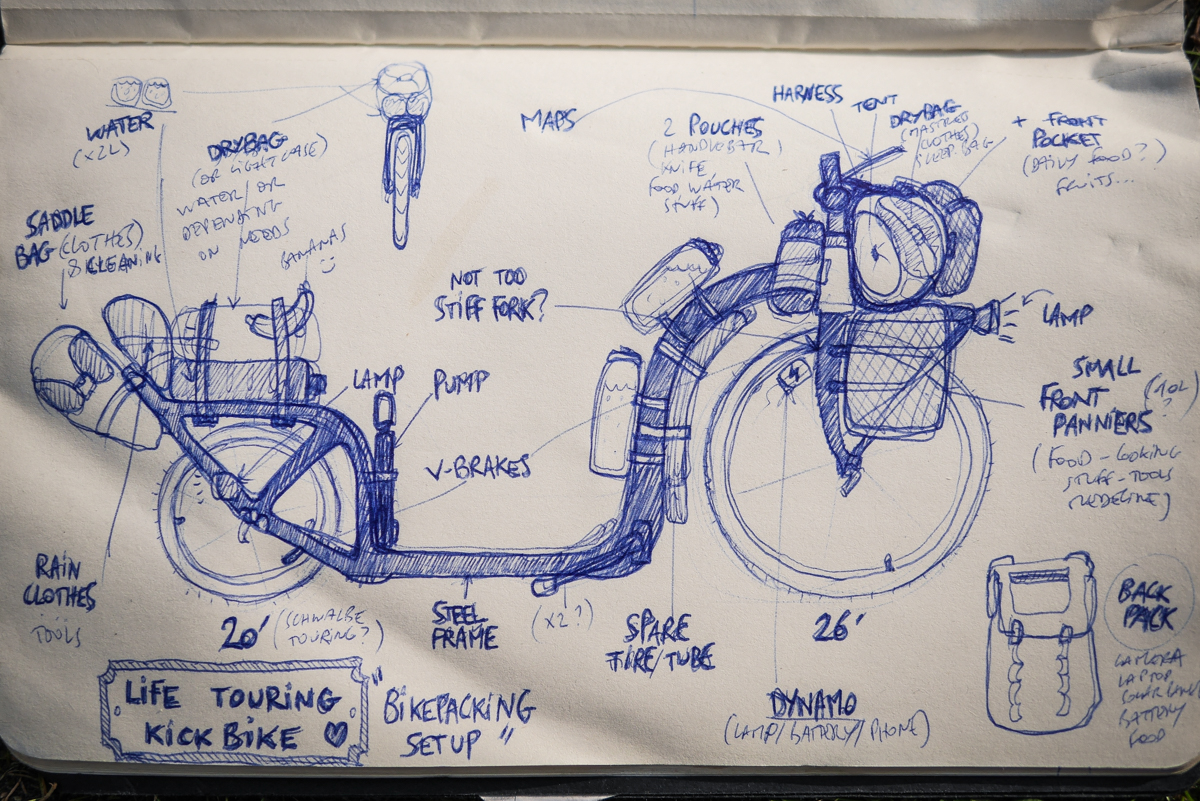 WATER
(x2L)
DRYBAG
(OR LIGHT CASE)
WATER/OR
DEPENDING
ON NEEDS
BANANAS
SADDLE
BAG (CLOTHES)
& CLEANING
MAPS
2 POUCHES
(HANDLEBAR)
KNIFE
FOOD, WATER
STUFF)
HARNESS
TENT
DRYBAG
CLOTHES
SLEEP. BAG
+ FRONT
POCKET
(DAILY FOOD?)
FRUITS...
NOT TOO
STIFF FORK?
LAMP
LAMP
PUMP
V-BRAKES
SMALL
FRONT
PANNIERS
(10L
?)
(FOOD - COOKING
STUFF - TOOLS
RAIN
CLOTHES
TOOLS
20'
(SCHWALBE
TOURING?)
STEEL
FRAME
(x2?)
SPARE
TIRE/TUBE
26'
DYNAMO
(LAMP/BATTERY/PHONE)
BACK
PACK
CAMERA
LAPTOP
BATTERY
FOOD
LIFE TOURING
KICKBIKE ♥
"BIKEPACKING
SETUP"